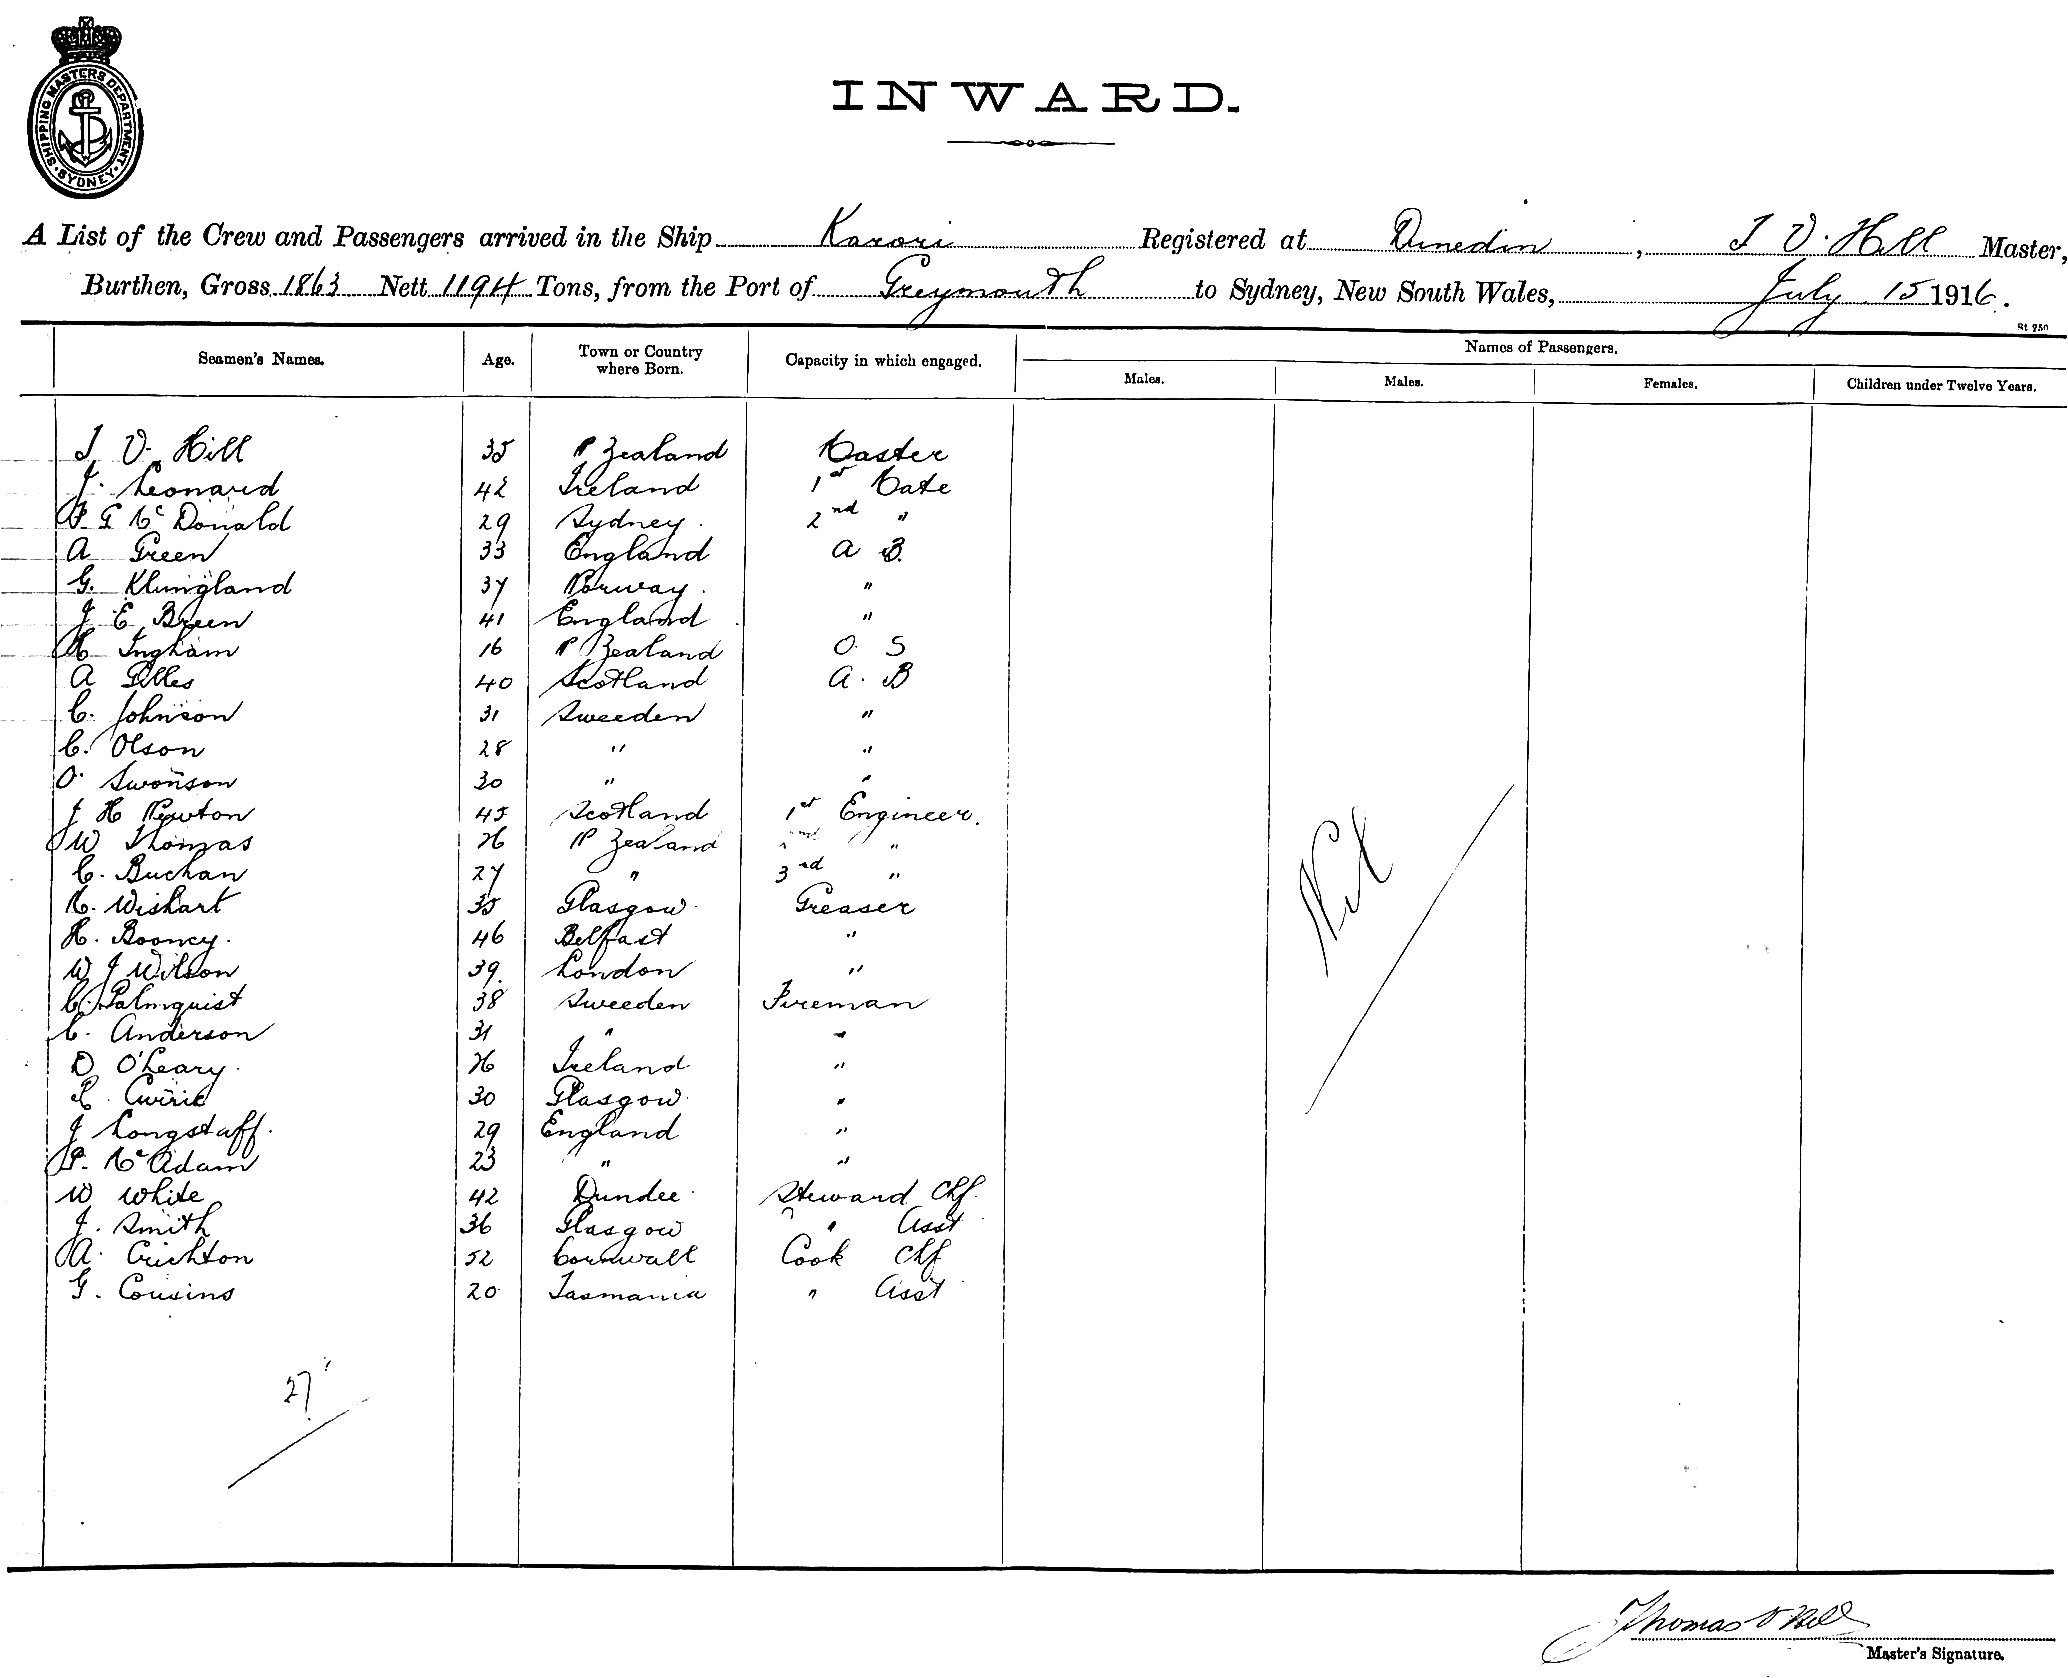 SHIPPING MASTERS DEPARTMENT · SYDNEY ·
INWARD.
A List of the Crew and Passengers arrived in the Ship Karori Registered at Dunedin, T V. Hill Master,
Burthen, Gross 1863 Nett 1194 Tons, from the Port of Greymouth to Sydney, New South Wales, July 15 1916.
St 250
Seamen's Names. Age. Town or Country where Born. Capacity in which engaged. Names of Passengers.
Males. Males. Females. Children under Twelve Years.
T V. Hill 35 N Zealand Master
J. Leonard 42 Ireland 1st Mate
G Mc Donald 29 Sydney. 2nd "
A Green 33 England A B.
G. Klungland 37 Norway. "
J E Breen 41 England "
H Ingham 16 N Zealand O. S
A 40 Scotland A. B
C. Johnson 31 Sweeden "
C. Olson 28 " "
O. Swonson 30 " "
J H Newton 45 Scotland 1st Engineer.
W Thomas 26 N Zealand 2nd "
C. Buchan 27 " 3rd "
Wishart 35 Glasgow Greaser
H. Booney. 46 Belfast "
W J Wilson 39. London "
C. Palmquist 38 Sweeden Fireman
C. Anderson 31 " "
D O'Leary. 26 Ireland "
30 Glasgow "
J Longstaff. 29 England "
P. Mc Adam 23 " "
W White 42 Dundee Steward Chf.
J. Smith 36 Glasgow " Asst
A. Crichton 52 Cornwall Cook Chf
G. Cousins 20 Tasmania " Asst
Nil
27
Thomas V Hill
Master's Signature.